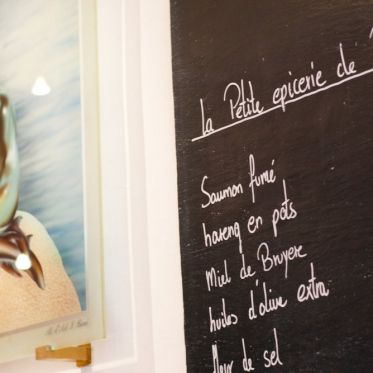 La Petite epicerie de
Saumon fumé
hareng en pots
Miel de Bruyere
huiles d'olive extra
fleur de sel